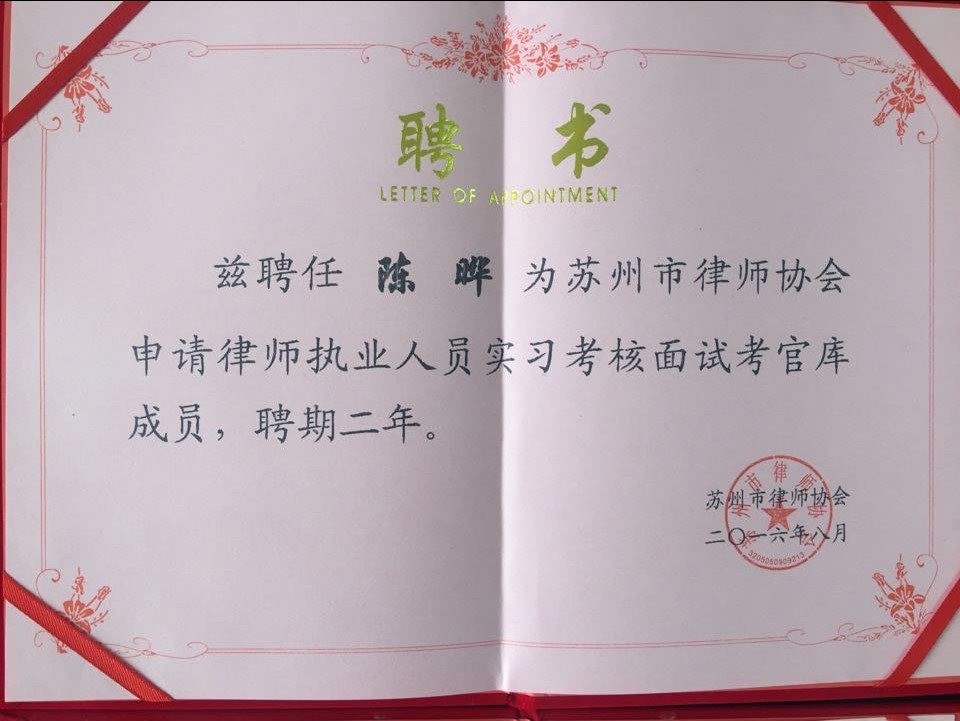 聘书
LETTER OF APPOINTMENT
兹聘任 陈晔 为苏州市律师协会
申请律师执业人员实习考核面试考官库
成员，聘期二年。
苏州市律师协会
二〇一六年八月
苏州市律师协会
3205050909213